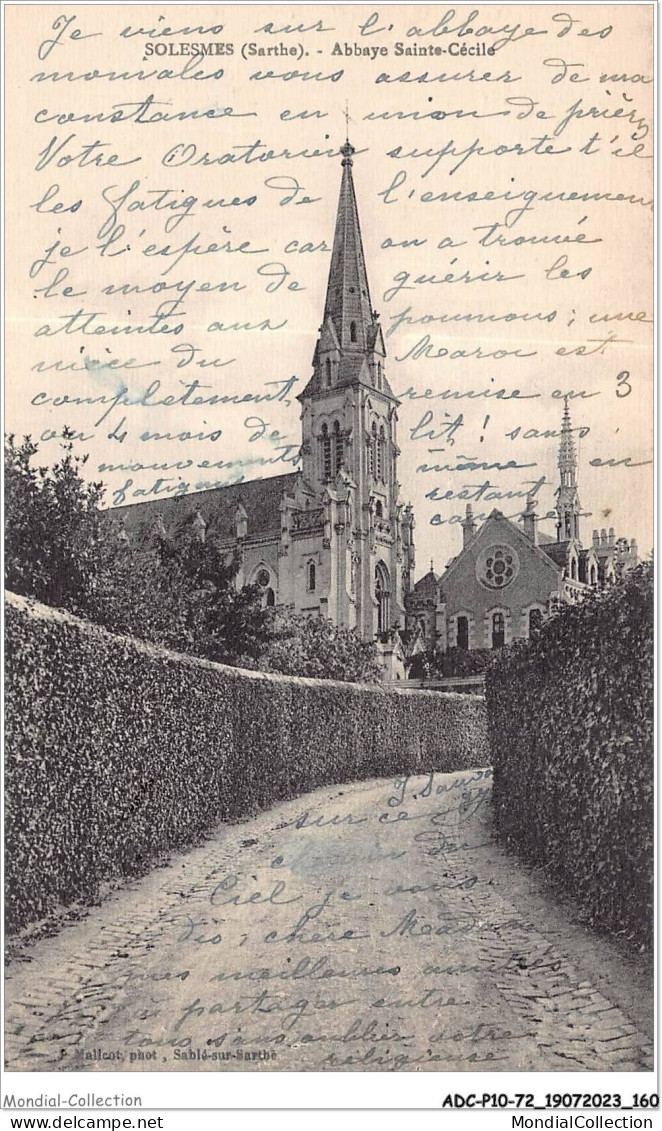 Je viens sur l'abbaye des
SOLESMES (Sarthe). - Abbaye Sainte-Cécile
moniales vous assurer de ma
constance en union de prière
Votre Oratorien supporte t'il
les fatigues de l'enseignement
je l'espère car on a trouvé
le moyen de guérir les
atteintes aux poumons ; une
nièce du Maroc est
complètement remise en 3
ou 4 mois de lit ! sans
mouvements même en
fatigants restant
couchée
J. Sauva
sur ce
chemin du
Ciel je vous
dis, chère Madame
mes meilleures amitiés
à partager entre
tous sans oublier votre
religieuse
J. Malicot, phot., Sablé-sur-Sarthe
Mondial-Collection
ADC-P10-72_19072023_160
www.MondialCollection.com